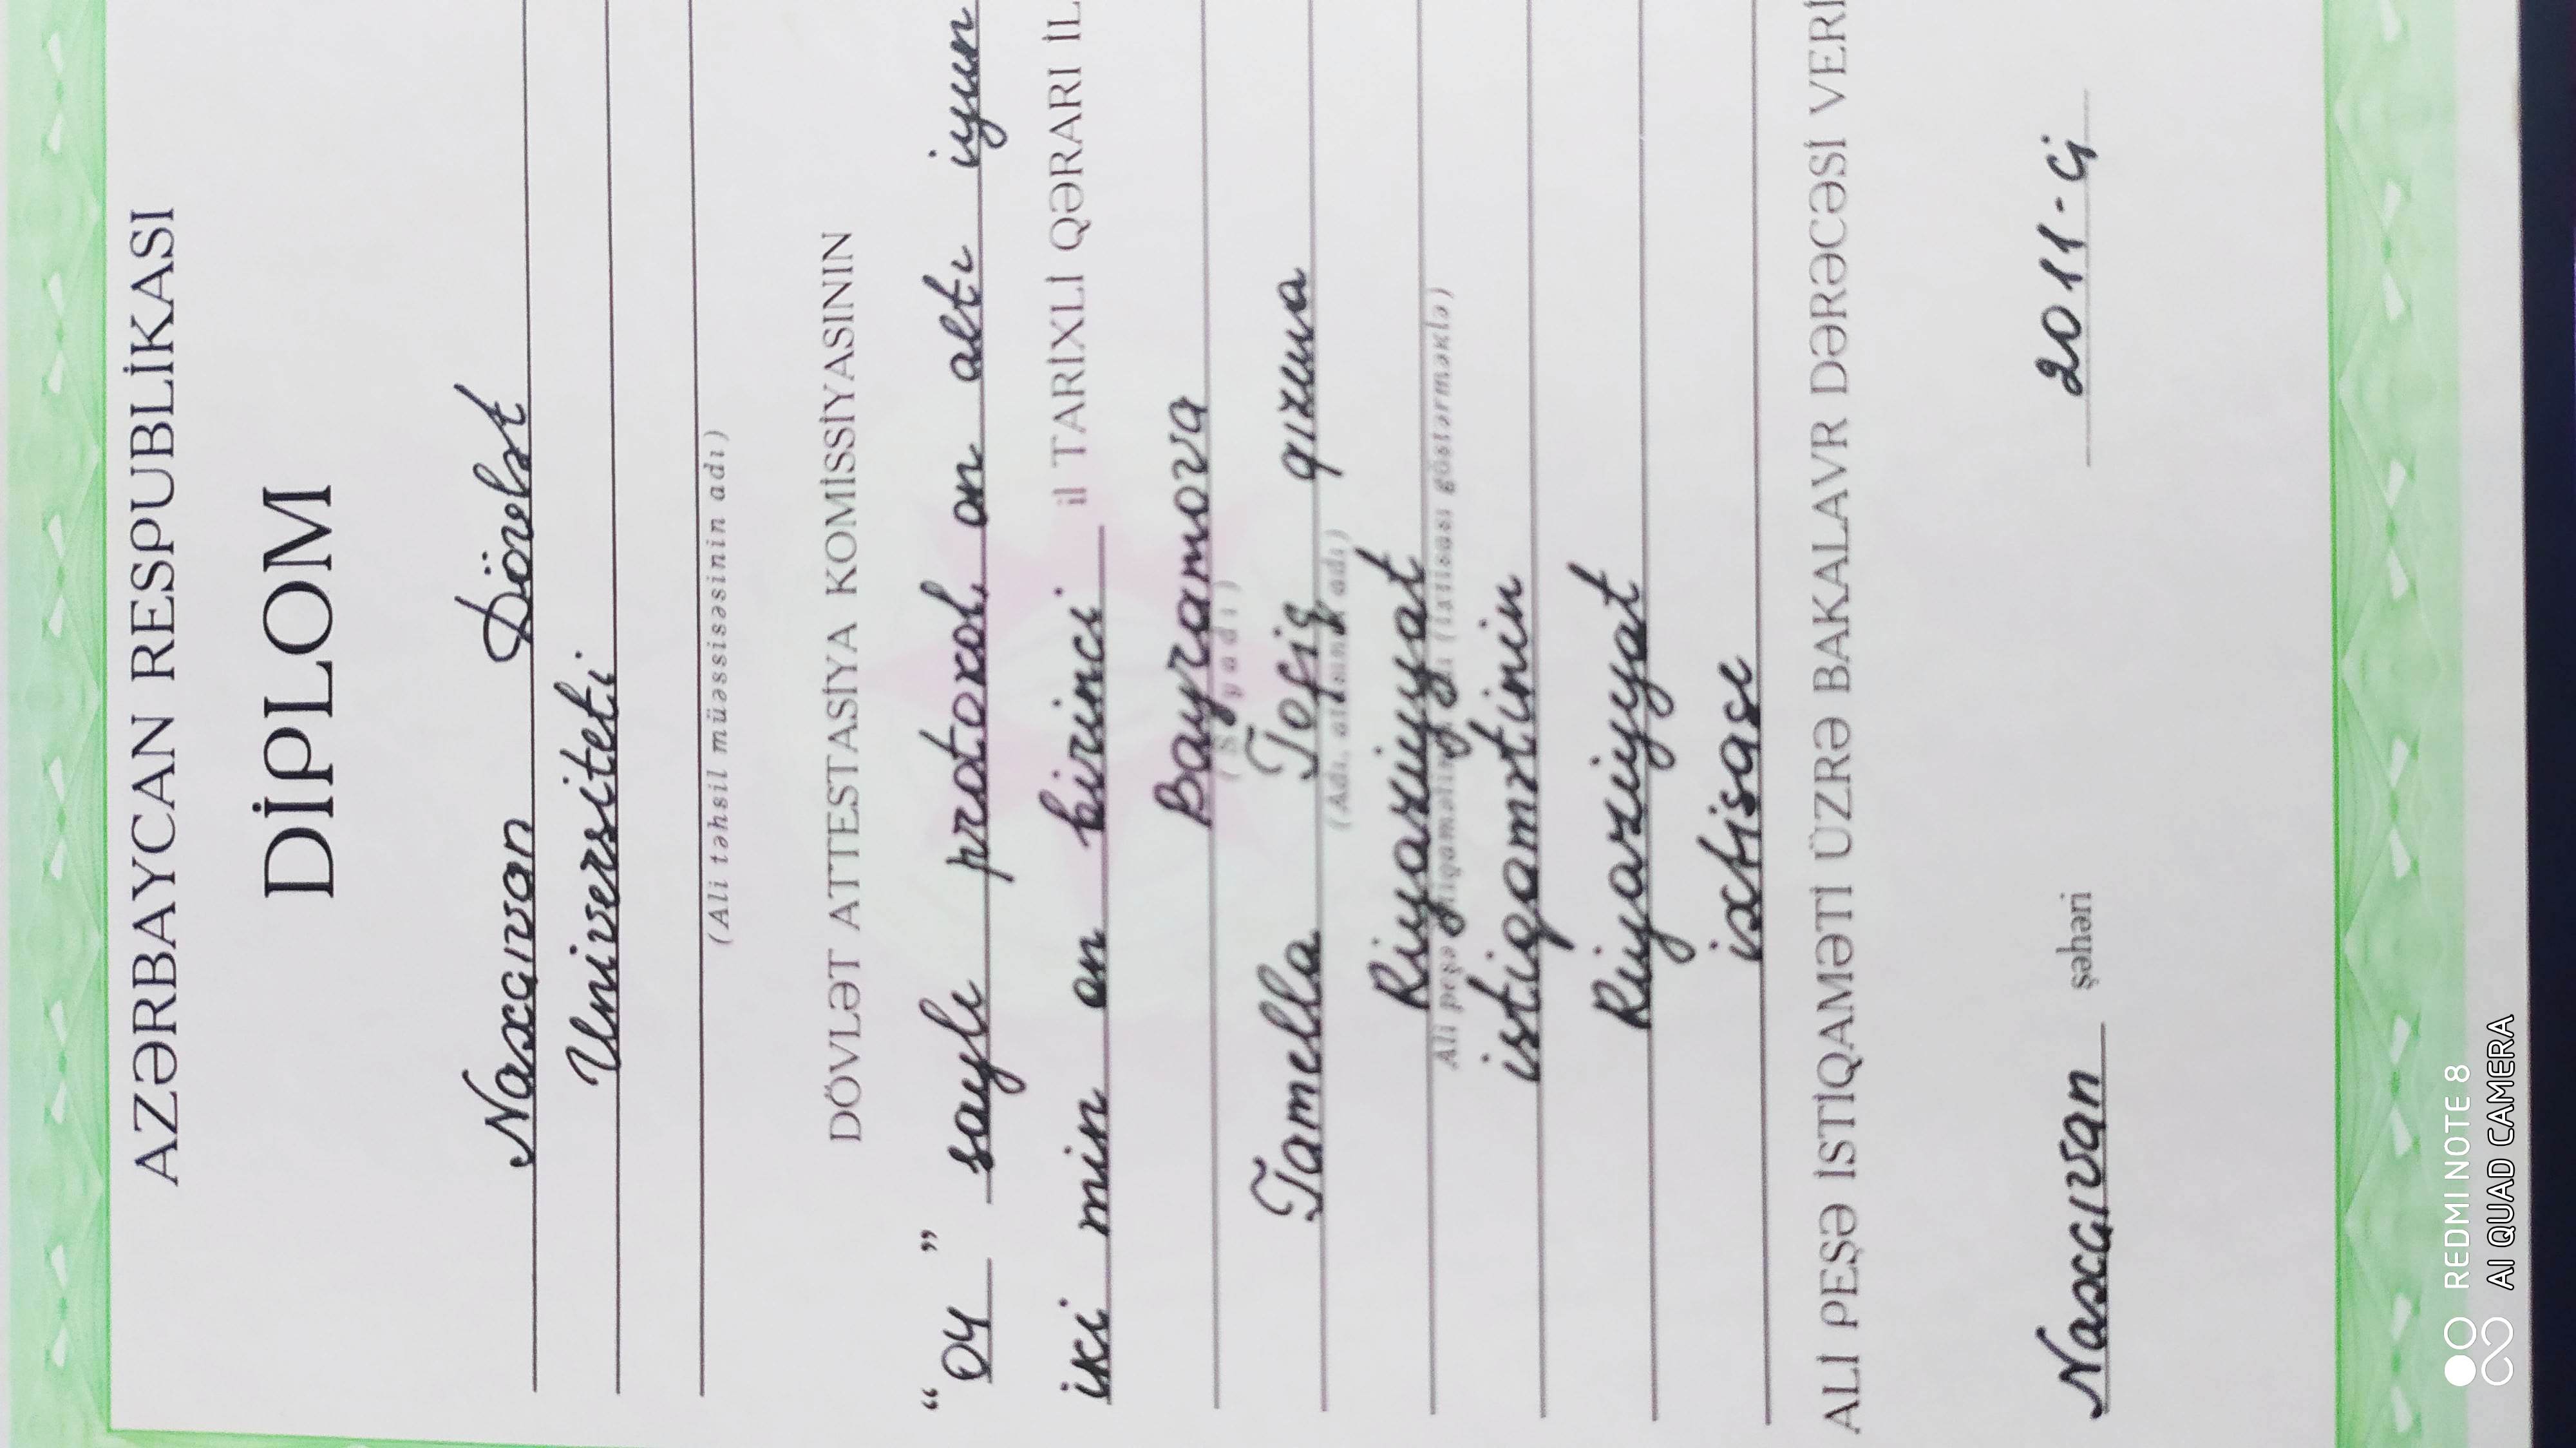 AZƏRBAYCAN RESPUBLİKASI
DİPLOM
Naxçıvan Dövlət
Universiteti
(Ali təhsil müəssisəsinin adı)
DÖVLƏT ATTESTASİYA KOMİSSİYASININ
"04" saylı protokol, on altı iyun
iki min on birinci il TARİXLİ QƏRARI İL
Bayramova
(Soyadı)
Tamella Tofiq qızına
(Adı, atasının adı)
Riyaziyyat
Ali peşə istiqamətinin adı (ixtisası göstərməklə)
istiqamətinin
Riyaziyyat
ixtisası
ALİ PEŞƏ İSTİQAMƏTİ ÜZRƏ BAKALAVR DƏRƏCƏSİ VERİ
Naxçıvan şəhəri 2011-ci
REDMI NOTE 8
AI QUAD CAMERA